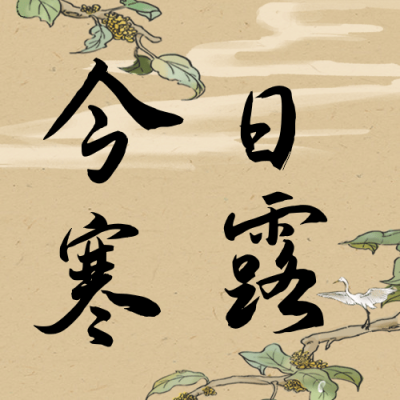 今日
寒露